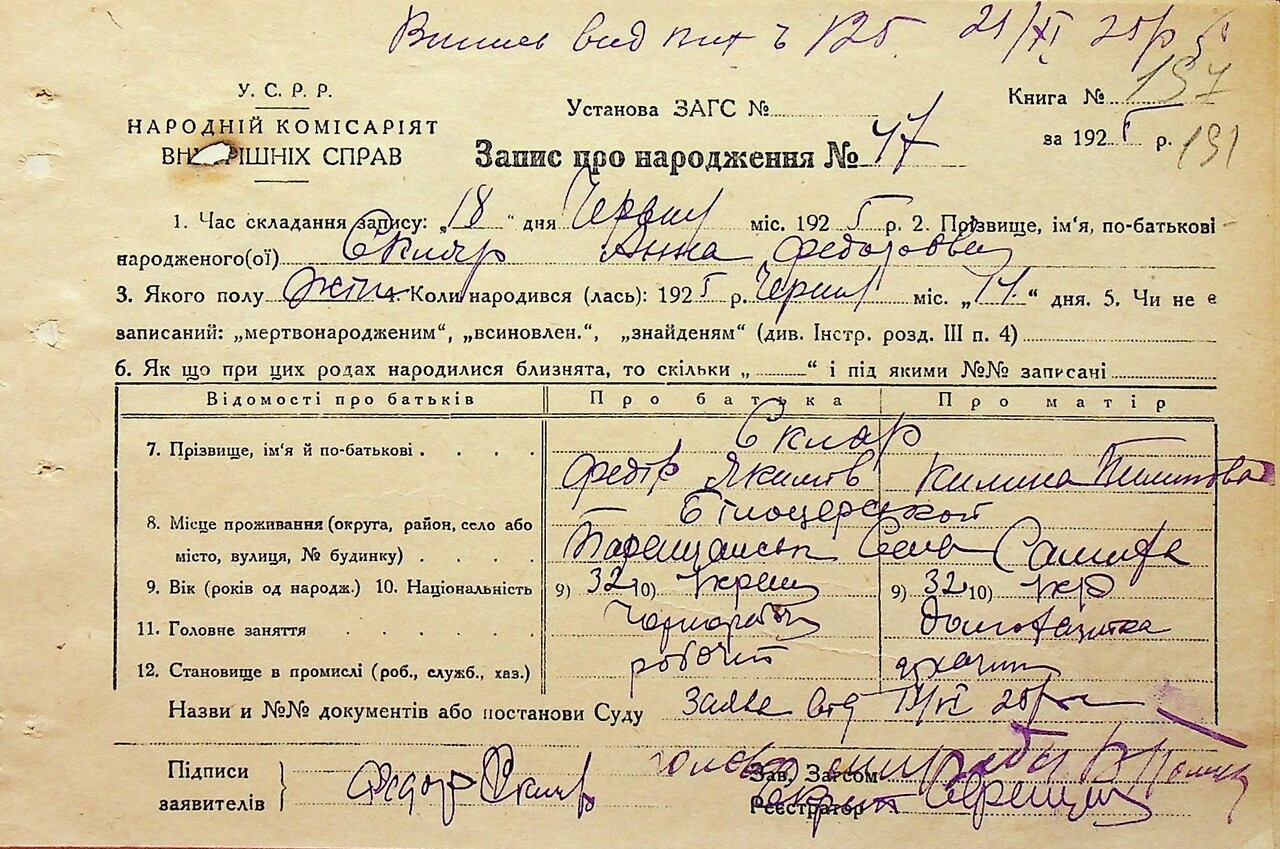 Випись вид 21/XI 25р
У. С. Р. Р.
НАРОДНІЙ КОМІСАРІЯТ
ВН РІШНІХ СПРАВ
Установа ЗАГС №
Книга № 157
за 1925 р. 191
Запис про народження № 47
1. Час складання запису: „18" дня Червня міс. 1925 р. 2. Прізвище, ім'я, по-батькові
народженого(ої) Скляр Анна Федоровна
3. Якого полу жін 4. Коли народився (лась): 1925 р. Червня міс. „14." дня. 5. Чи не є
записаний: „мертвонародженим", „всиновлен.", „знайденям" (див. Інстр. розд. III п. 4)
6. Як що при цих родах народилися близнята, то скільки „ " і під якими №№ записані
Відомості про батьків Про батька Про матір
7. Прізвище, ім'я й по-батькові . . . . Скляр
Федір Якимів Килина Пилипова
8. Місце проживання (округа, район, село або Білоцерської
місто, вулиця, № будинку) . . . . . Село
9. Вік (років од народж.) 10. Національність 9) 32 10) Украин 9) 32 10) Укр
11. Головне заняття . . . . . . Чорнороб
12. Становище в промислі (роб., служб., хаз.) робочий
Назви и №№ документів або постанови Суду Заява від 25р
Підписи
заявителів Федор Скляр
Зав. Загсом
Реєстратор